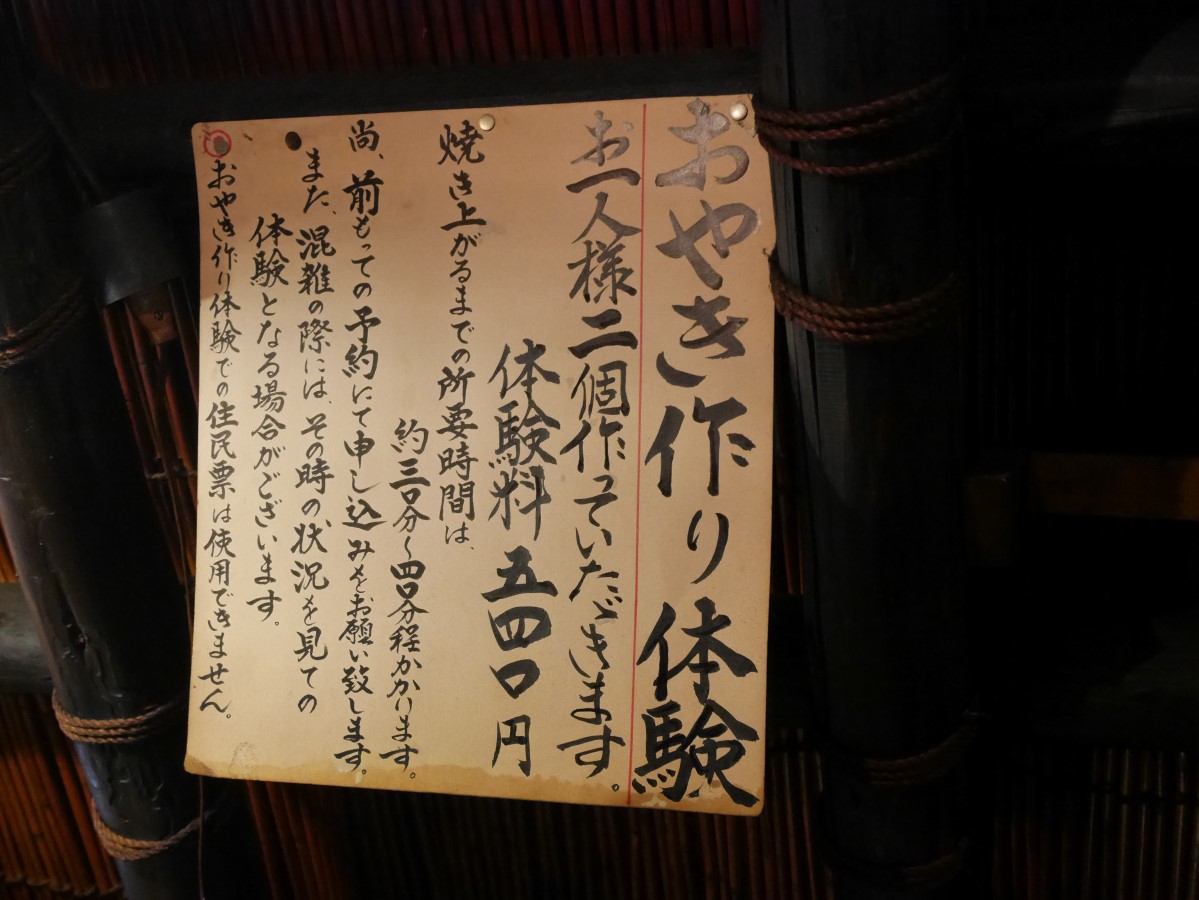 おやき作り体験
お一人様二個作っていただきます。
体験料 五四〇円
焼き上がるまでの所要時間は、
約三〇分〜四〇分程かかります。
尚、前もっての予約にて申し込みをお願い致します。
また、混雑の際には、その時の状況を見ての
体験となる場合がございます。
おやき作り体験での住民票は使用できません。